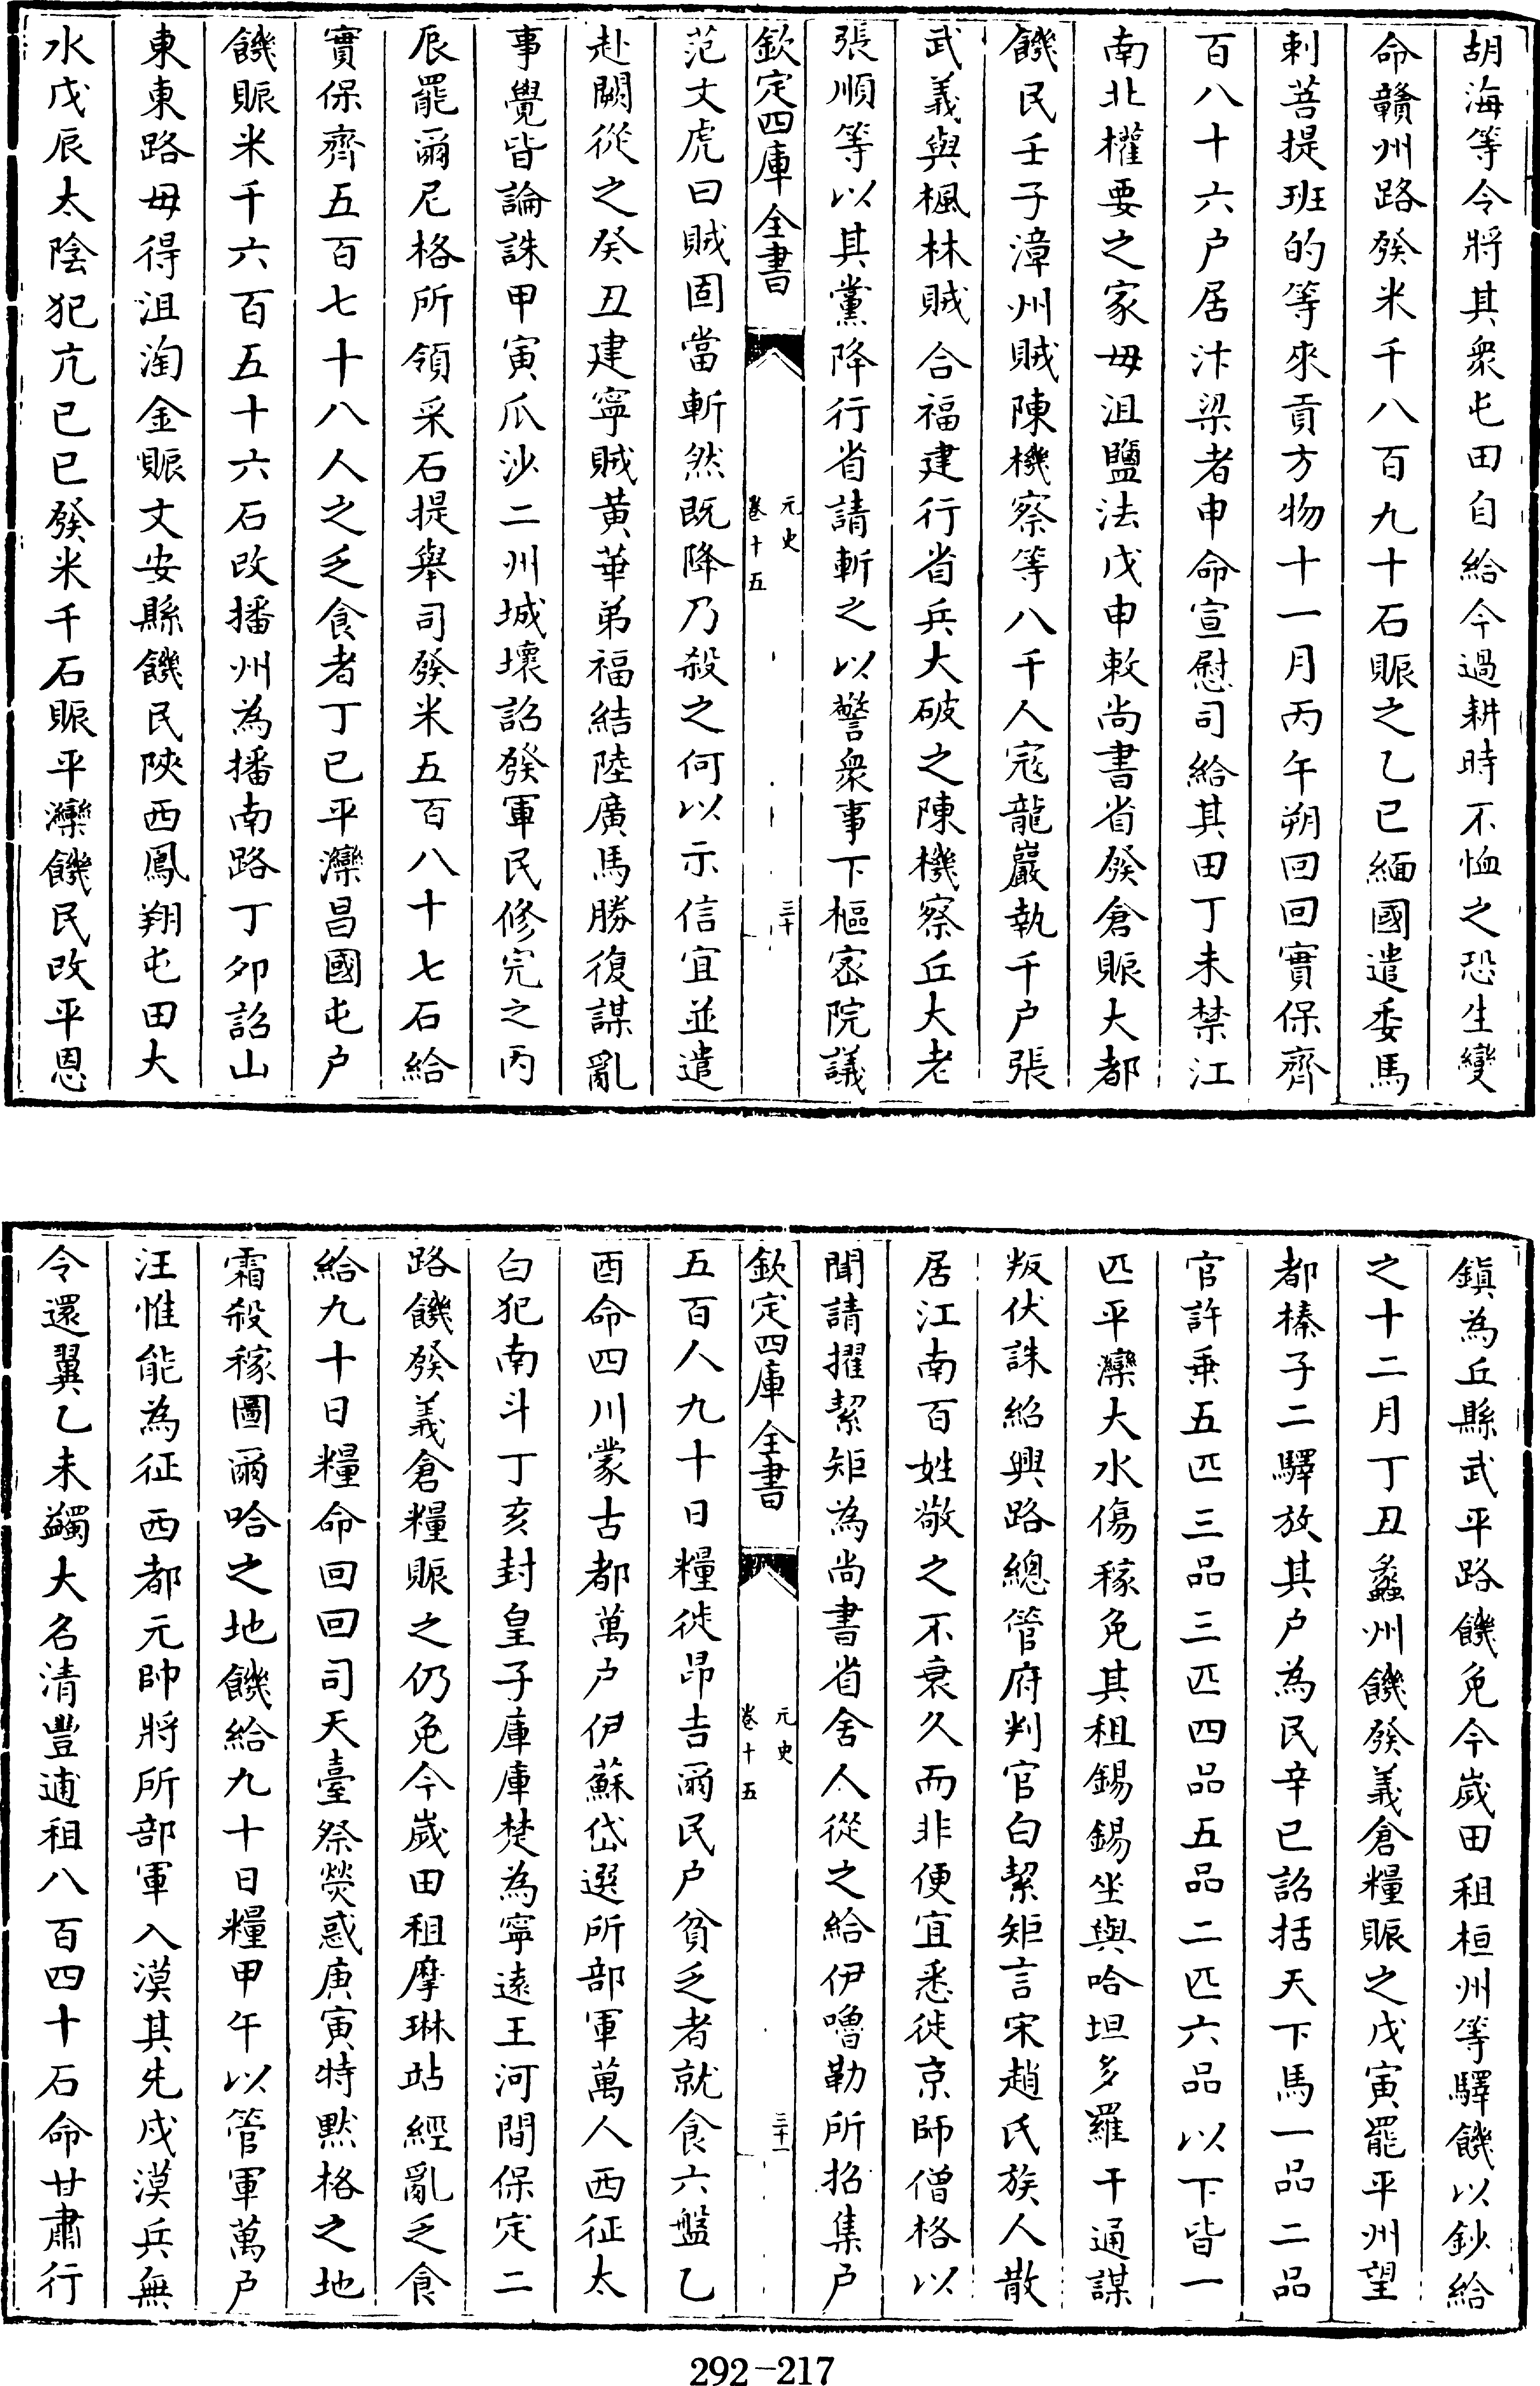 胡海等令將其衆屯田自給今過耕時不恤之恐生變
命贛州路發米千八百九十石賑之乙巳緬國遣委馬
剌菩提班的等來貢方物十一月丙午朔回回實保齊
百八十六户居汴梁者申命宣慰司給其田丁未禁江
南北權要之家毋沮鹽法戊申敕尚書省發倉賑大都
饑民壬子漳州賊陳機察等八千人寇龍巖執千户張
武義與楓林賊合福建行省兵大破之陳機察丘大老
張順等以其黨降行省請斬之以警衆事下樞宻院議
欽定四庫全書 元史 卷十五 三十
范文虎曰賊固當斬然既降乃殺之何以示信宜並遣
赴闕從之癸丑建寧賊黄華弟福結陸廣馬勝復謀亂
事覺皆論誅甲寅瓜沙二州城壞詔發軍民修完之丙
辰罷爾尼格所領采石提舉司發米五百八十七石給
實保齊五百七十八人之乏食者丁巳平灤昌國屯户
饑賑米千六百五十六石改播州為播南路丁卯詔山
東東路毋得沮淘金賑文安縣饑民陜西鳳翔屯田大
水戊辰太陰犯亢己巳發米千石賑平灤饑民改平恩
鎮為丘縣武平路饑免今歲田租桓州等驛饑以鈔給
之十二月丁丑蠡州饑發義倉糧賑之戊寅罷平州望
都榛子二驛放其户為民辛巳詔括天下馬一品二品
官許乗五匹三品三匹四品五品二匹六品以下皆一
匹平灤大水傷稼免其租錫錫坐與哈坦多羅干通謀
叛伏誅紹興路總管府判官白絜矩言宋趙氏族人散
居江南百姓敬之不衰久而非便宜悉徙京師僧格以
聞請擢絜矩為尚書省舍人從之給伊嚕勒所招集户
欽定四庫全書 元史 卷十五 三十一
五百人九十日糧徙昂吉爾民户貧乏者就食六盤乙
酉命四川蒙古都萬户伊蘇岱選所部軍萬人西征太
白犯南斗丁亥封皇子庫庫楚為寧逺王河間保定二
路饑發義倉糧賑之仍免今歲田租摩琳站經亂乏食
給九十日糧命回回司天臺祭熒惑庚寅特黙格之地
霜殺稼圖爾哈之地饑給九十日糧甲午以管軍萬户
汪惟能為征西都元帥將所部軍入漠其先戍漠兵無
令還翼乙未蠲大名清豐逋租八百四十石命甘肅行
292-217